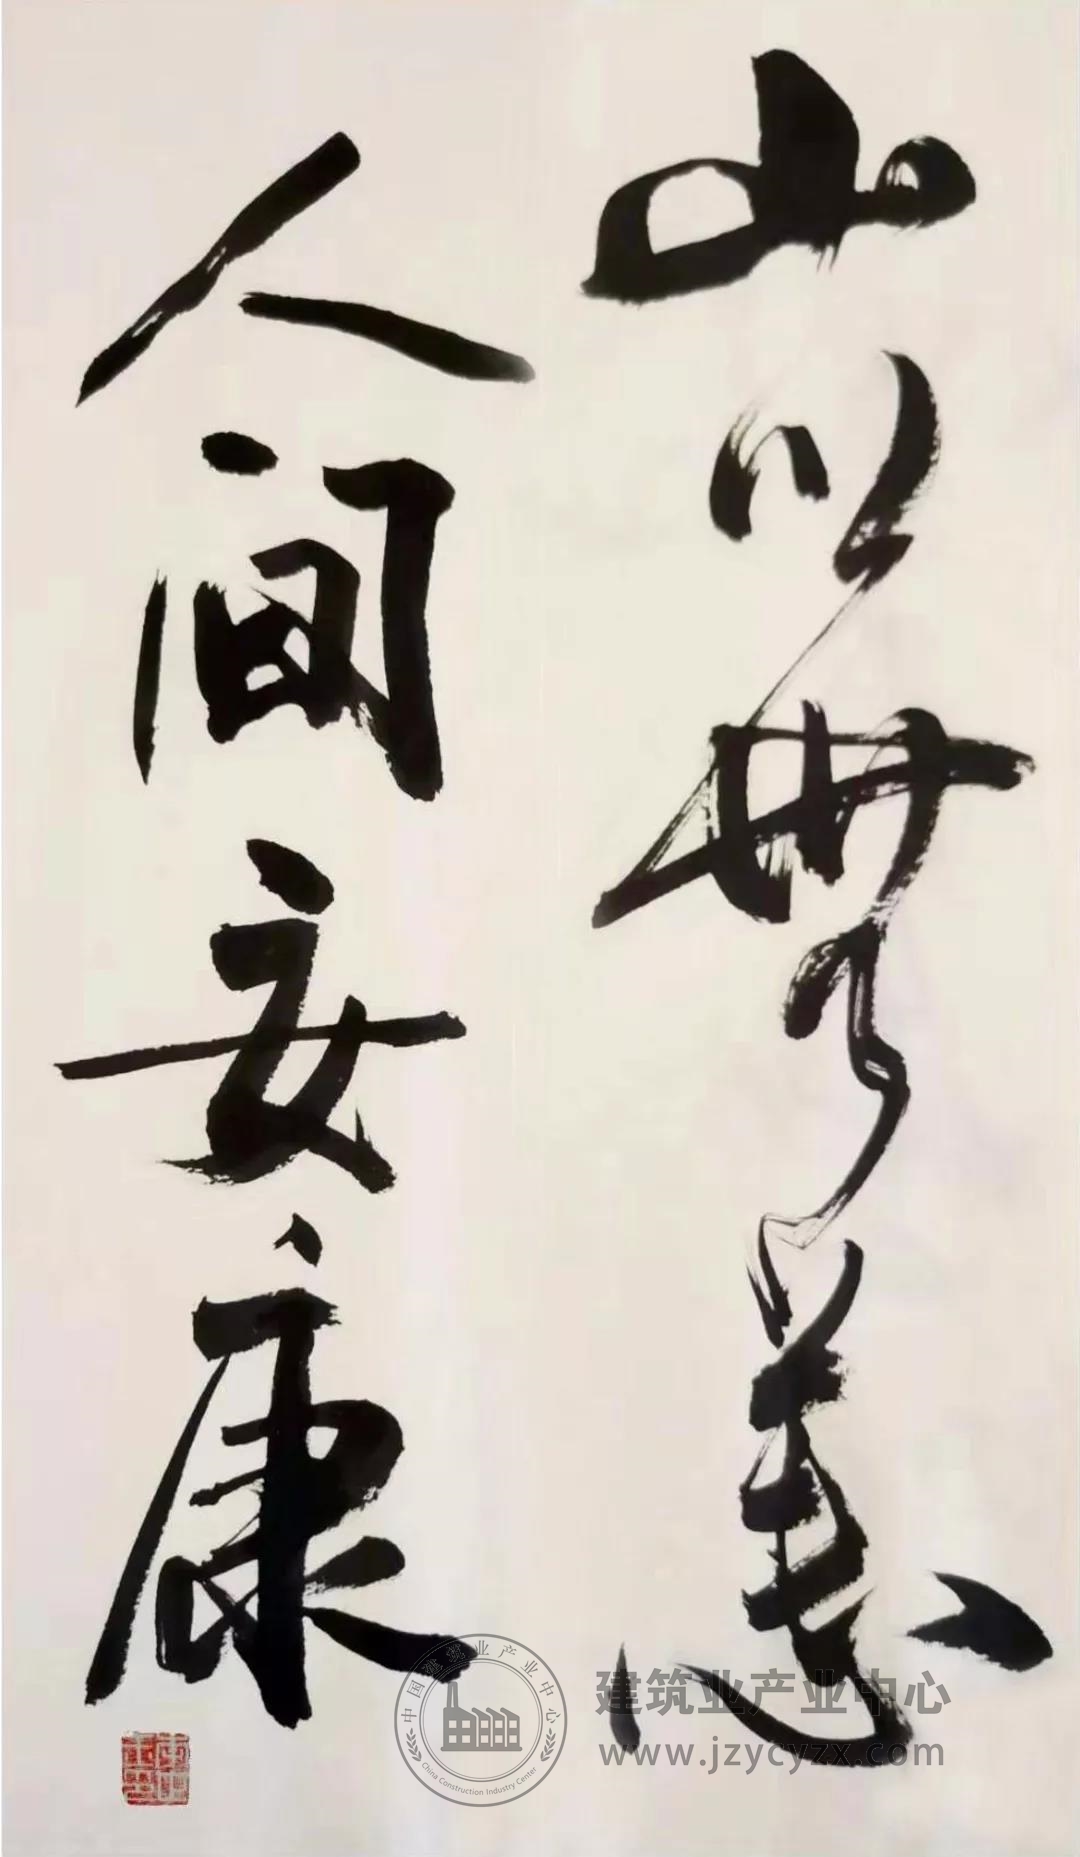 山川無恙
人间安康
中国建筑业产业中心
China Construction Industry Center
建筑业产业中心
www.jzycyzx.com